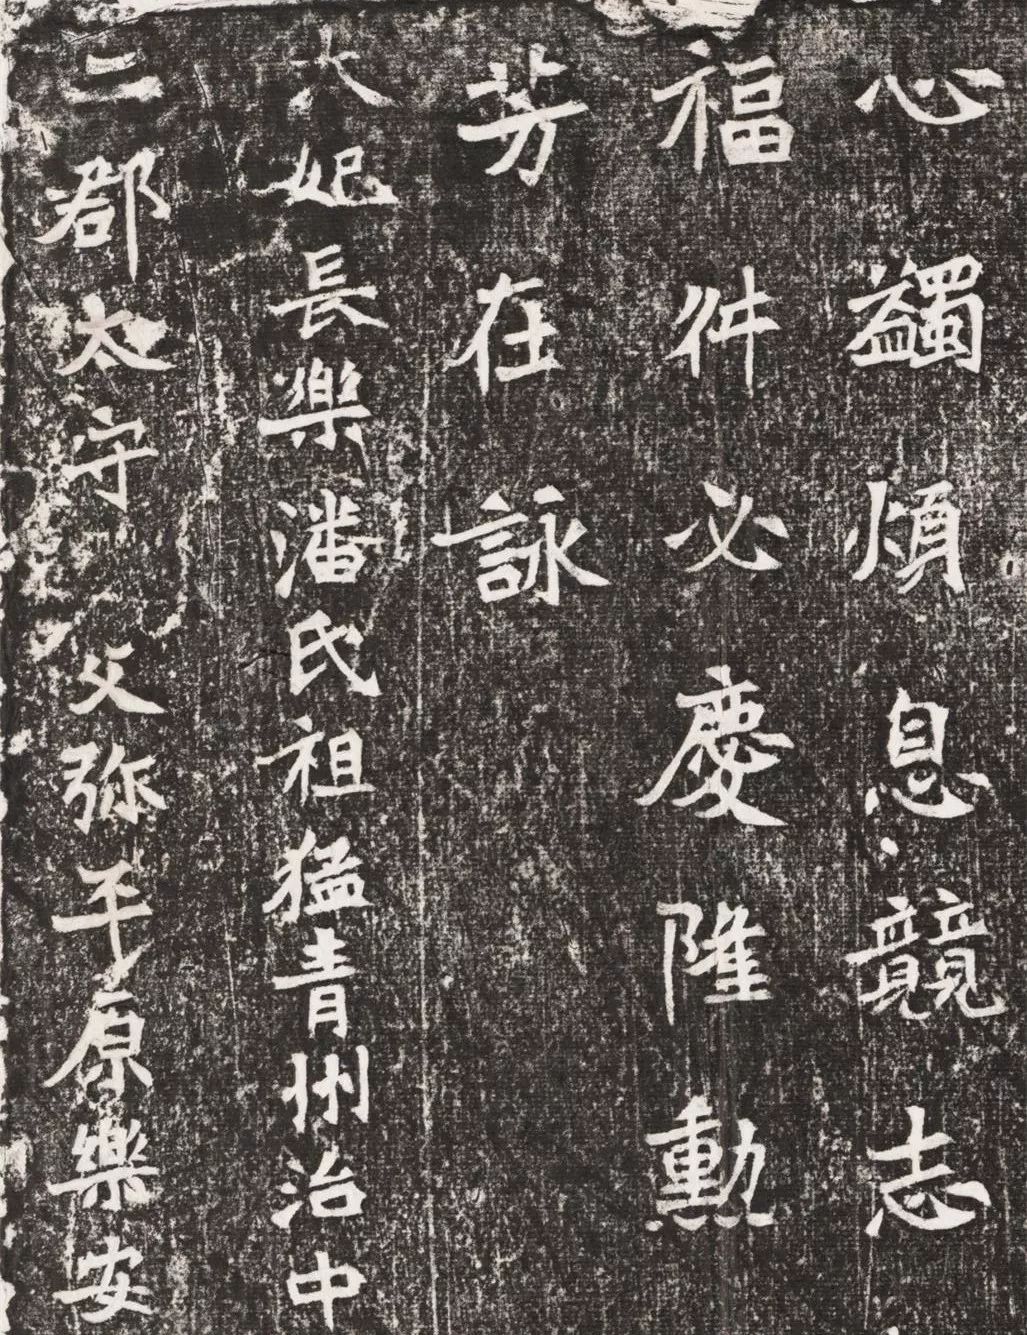 心蠲煩息競志
福舛必慶隆勲
芳在詠
大妃長樂潘氏祖猛青州治中
二郡太守父弥平原樂安